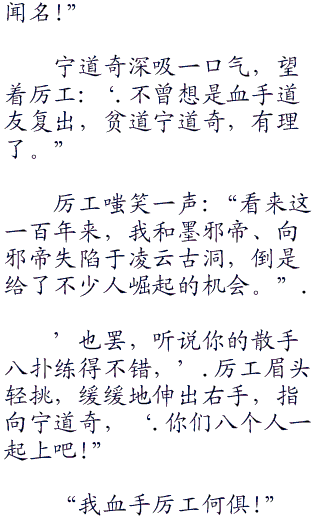 闻名！”
宁道奇深吸一口气，望
着厉工：‘.不曾想是血手道
友复出，贫道宁道奇，有理
了。”
厉工嗤笑一声：“看来这
一百年来，我和墨邪帝、向
邪帝失陷于凌云古洞，倒是
给了不少人崛起的机会。”.
’也罢，听说你的散手
八扑练得不错，’.厉工眉头
轻挑，缓缓地伸出右手，指
向宁道奇，‘.你们八个人一
起上吧！”
“我血手厉工何俱！”